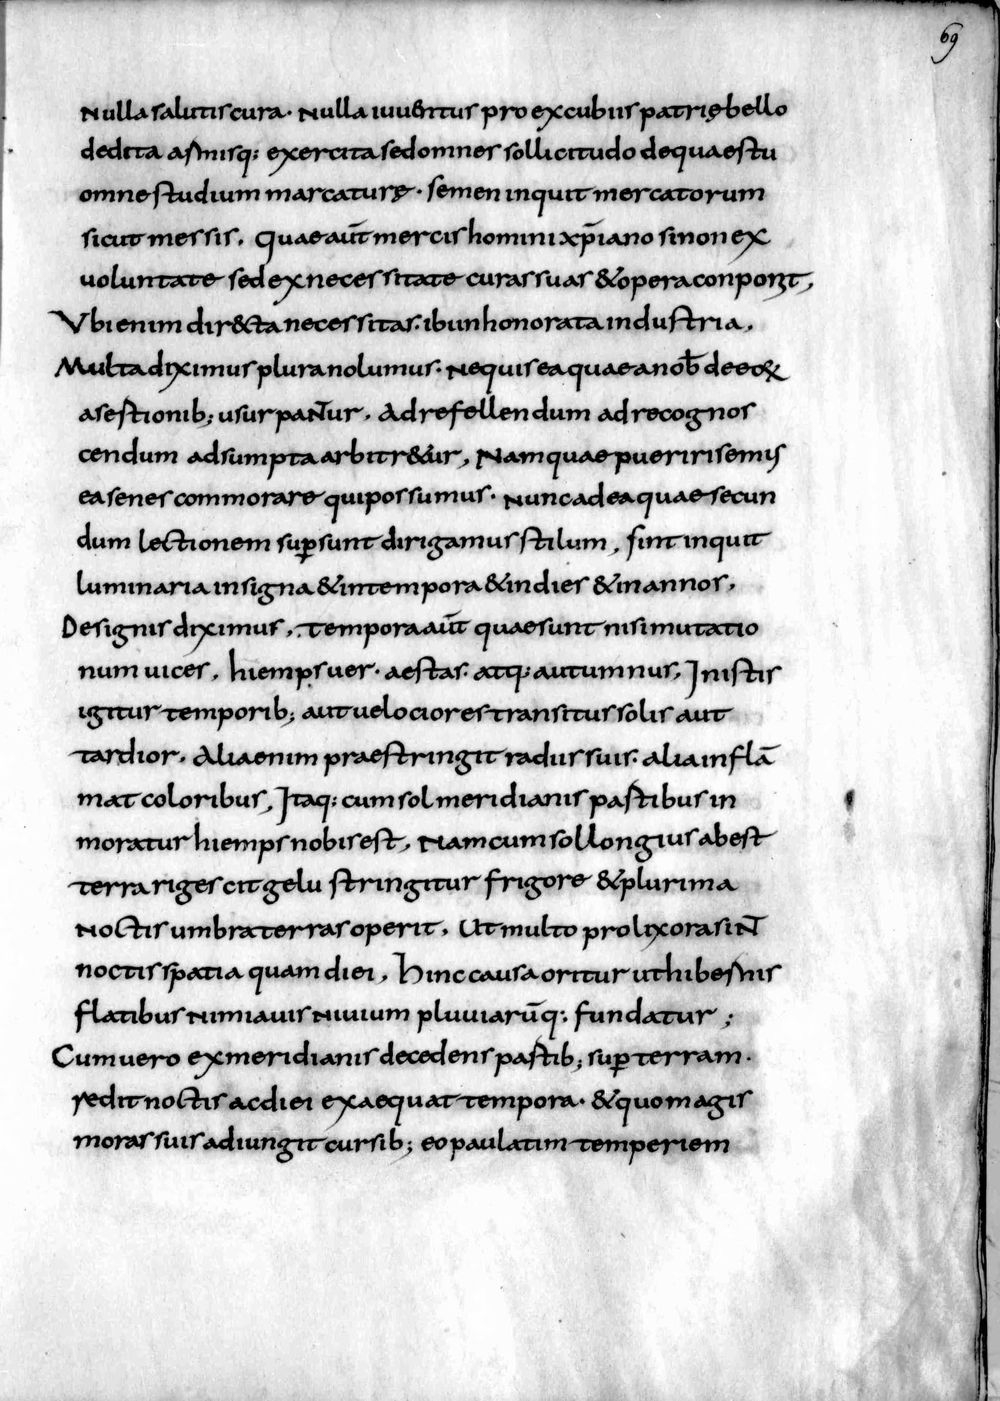 69
Nulla salutis cura · Nulla iuuentus pro excubiis patrię bello
dedita armisq; exercita sed omnes sollicitudo de quaestu
omne studium marcaturę · semen inquit mercatorum
sicut messis, Quae aut̄ mercis homini xp̄iano si non ex
uoluntate sed ex necessitate curas suas & opera conponat,
Vbi enim dir&ta necessitas · ibi inhonorata industria,
Multa diximus plura nolumus · Nequis ea quae a nob̄ de eo&
asestionib; usurpaNtur, Ad refellendum ad recognos
cendum adsumpta arbitr&ur, Nam quae pueri risemis
ea senes commorare qui possumus · Nunc ad ea quae secun
dum lectionem sup̲sunt dirigamus stilum, sint inquit
luminaria in signa & in tempora & in dies & in annos,
De signis diximus, tempora aut̄ quae sunt nisi mutatio
num uices, hiemps uer · aestas · atq; autumnus, In istis
igitur temporib; aut uelociores transitus solis aut
tardior, Alia enim praestringit radiis suis · alia inflā
mat coloribus, Itaq; cum sol meridianis pastibus in
moratur hiemps nobis est, Nam cum sol longius abest
terra rigescit gelu stringitur frigore & plurima
Noctis umbra terras operit, Ut multo prolixora siNt
noctis spatia quam diei, Hinc causa oritur ut hibernis
flatibus nimia uis niuium pluuiarūq; fundatur ;
Cum uero ex meridianis decedens pastib; sup̲ terram ·
redit noctis ac diei exaequat tempora · & quo magis
moras suis adiungit cursib; eo paulatim temperiem